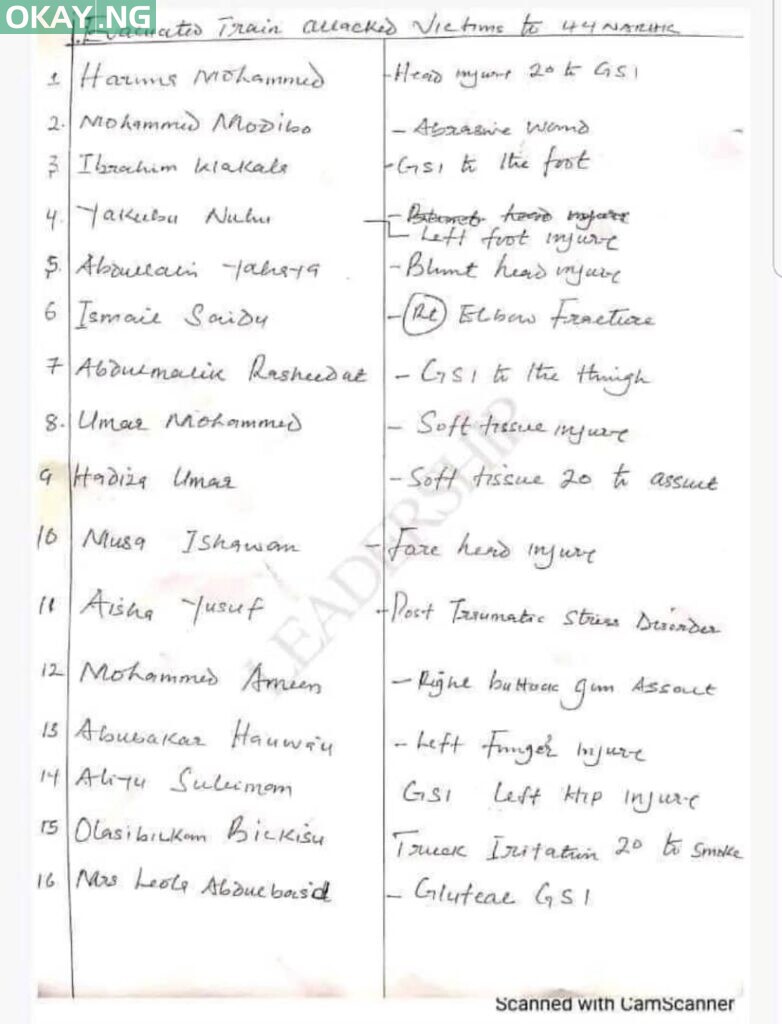 OKAY.NG
Evacuated Train attacked Victims to 44 NARHK
1 Haruna Mohammed - Head injure 20 to GSI
2. Mohammed Modibo - Abrasive wound
3 Ibrahim Wakala - GSI to the foot
4. Yakubu Nuhu - Blunt head injure
- Left foot injure
5. Abdullahi Yahaya - Blunt head injure
6 Ismail Saidu - (Rt) Elbow Fracture
7 Abdulmalik Rasheedat - GSI to the thigh
8. Umar Mohammed - Soft tissue injure
9 Hadiza Umar - Soft tissue 20 to assult
10 Musa Ishawan - Fore head injure
11 Aisha Yusuf - Post Traumatic Stress Disorder
12 Mohammed Ameen - Right buttock gun Assout
13 Abubakar Hauwa'u - Left Finger injure
14 Aliyu Suleimam GSI Left Hip injure
15 Olasibikam Bickisu Iritation 20 to smoke
16 Mrs - Gluteal GSI
LEADERSHIP
Scanned with CamScanner